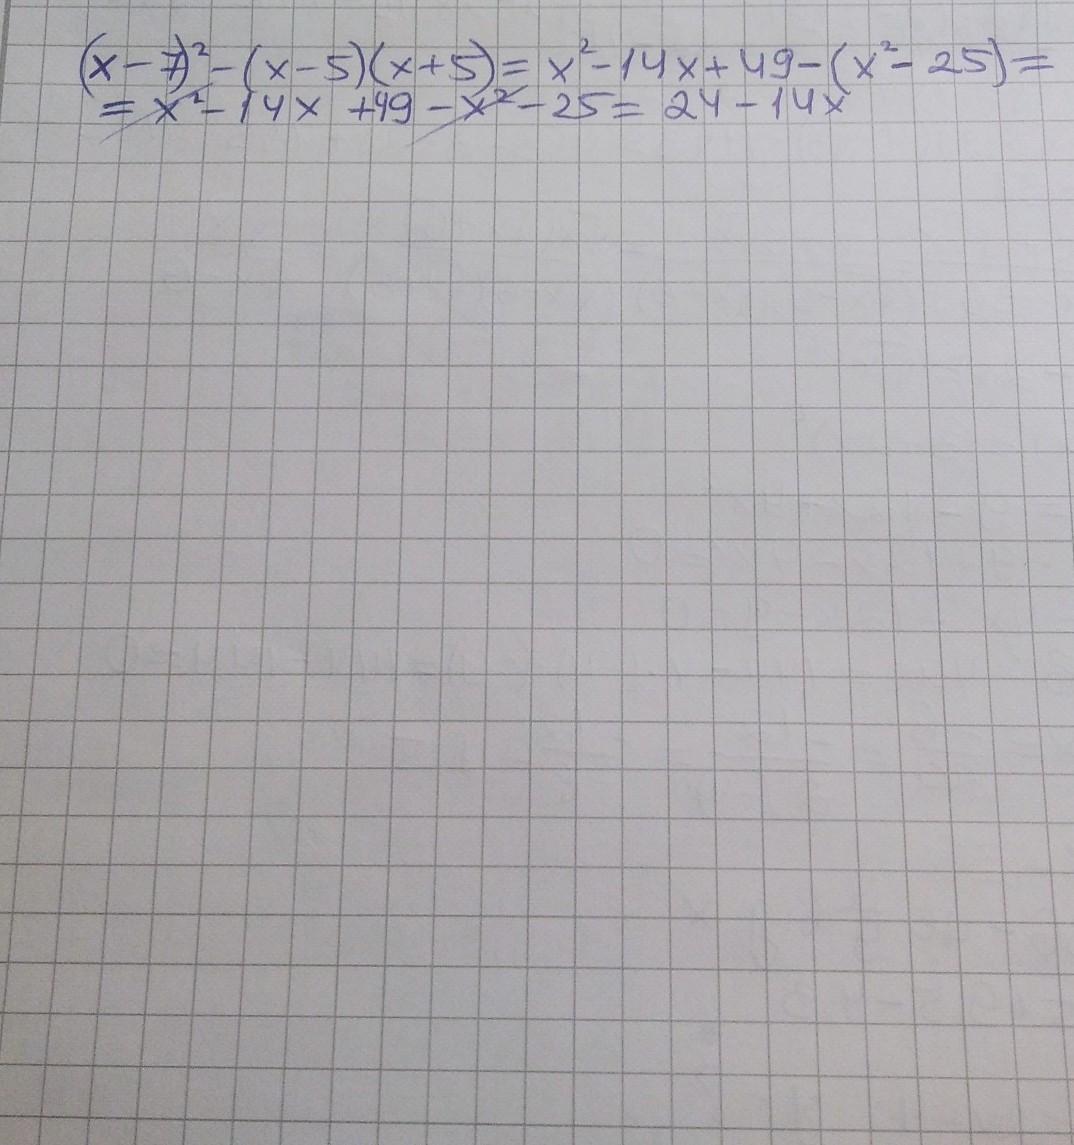 (x-7)²-(x-5)(x+5)=x²-14x+49-(x²-25)=
=x²-14x+49-x²-25=24-14x